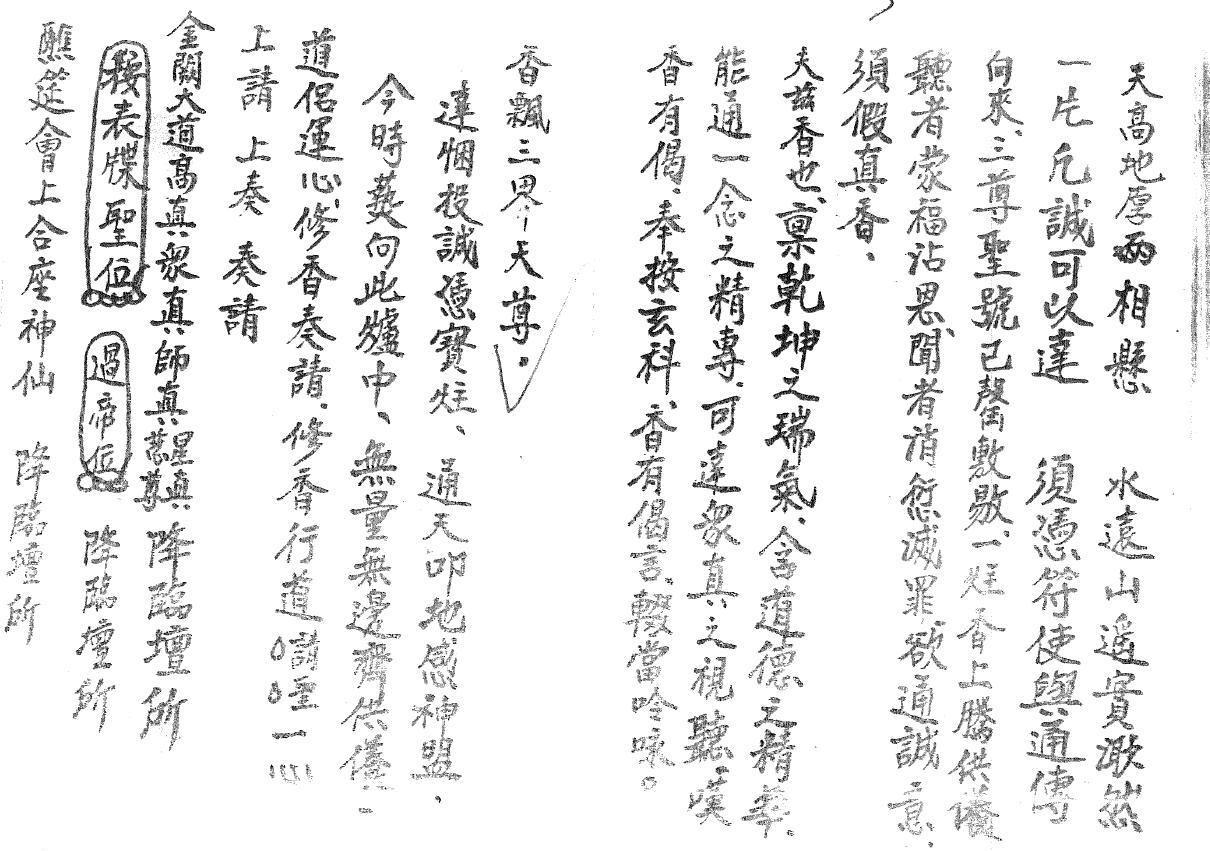 天高地厚兩相懸　水遠山遙實渺然
一片凡誠可以達　須憑符使與通傳
向來、三尊聖號已罄敷敭、一炷香上騰供養
聽者蒙福沾恩、聞者消愆滅罪、欲通誠意、
須假真香、
夫茲香也、稟乾坤之瑞氣、含道德之精華、
能通一念之精專、可達衆真之視聽、嘆
香有偈、奉按玄科、香有偈言、輟當吟咏。
香飄三界天尊。
達悃投誠憑寶炷、通天叩地感神盟、
今時爇向此爐中、無量無邊齊供養
道侶運心、修香奏請、修香行道 請聖一
上請　上奏　奏請
金闕大道高真衆真師真星真 尊降臨壇所
按表牒聖位　過帝位　降臨壇所
醮筵會上合座神仙　降臨壇所